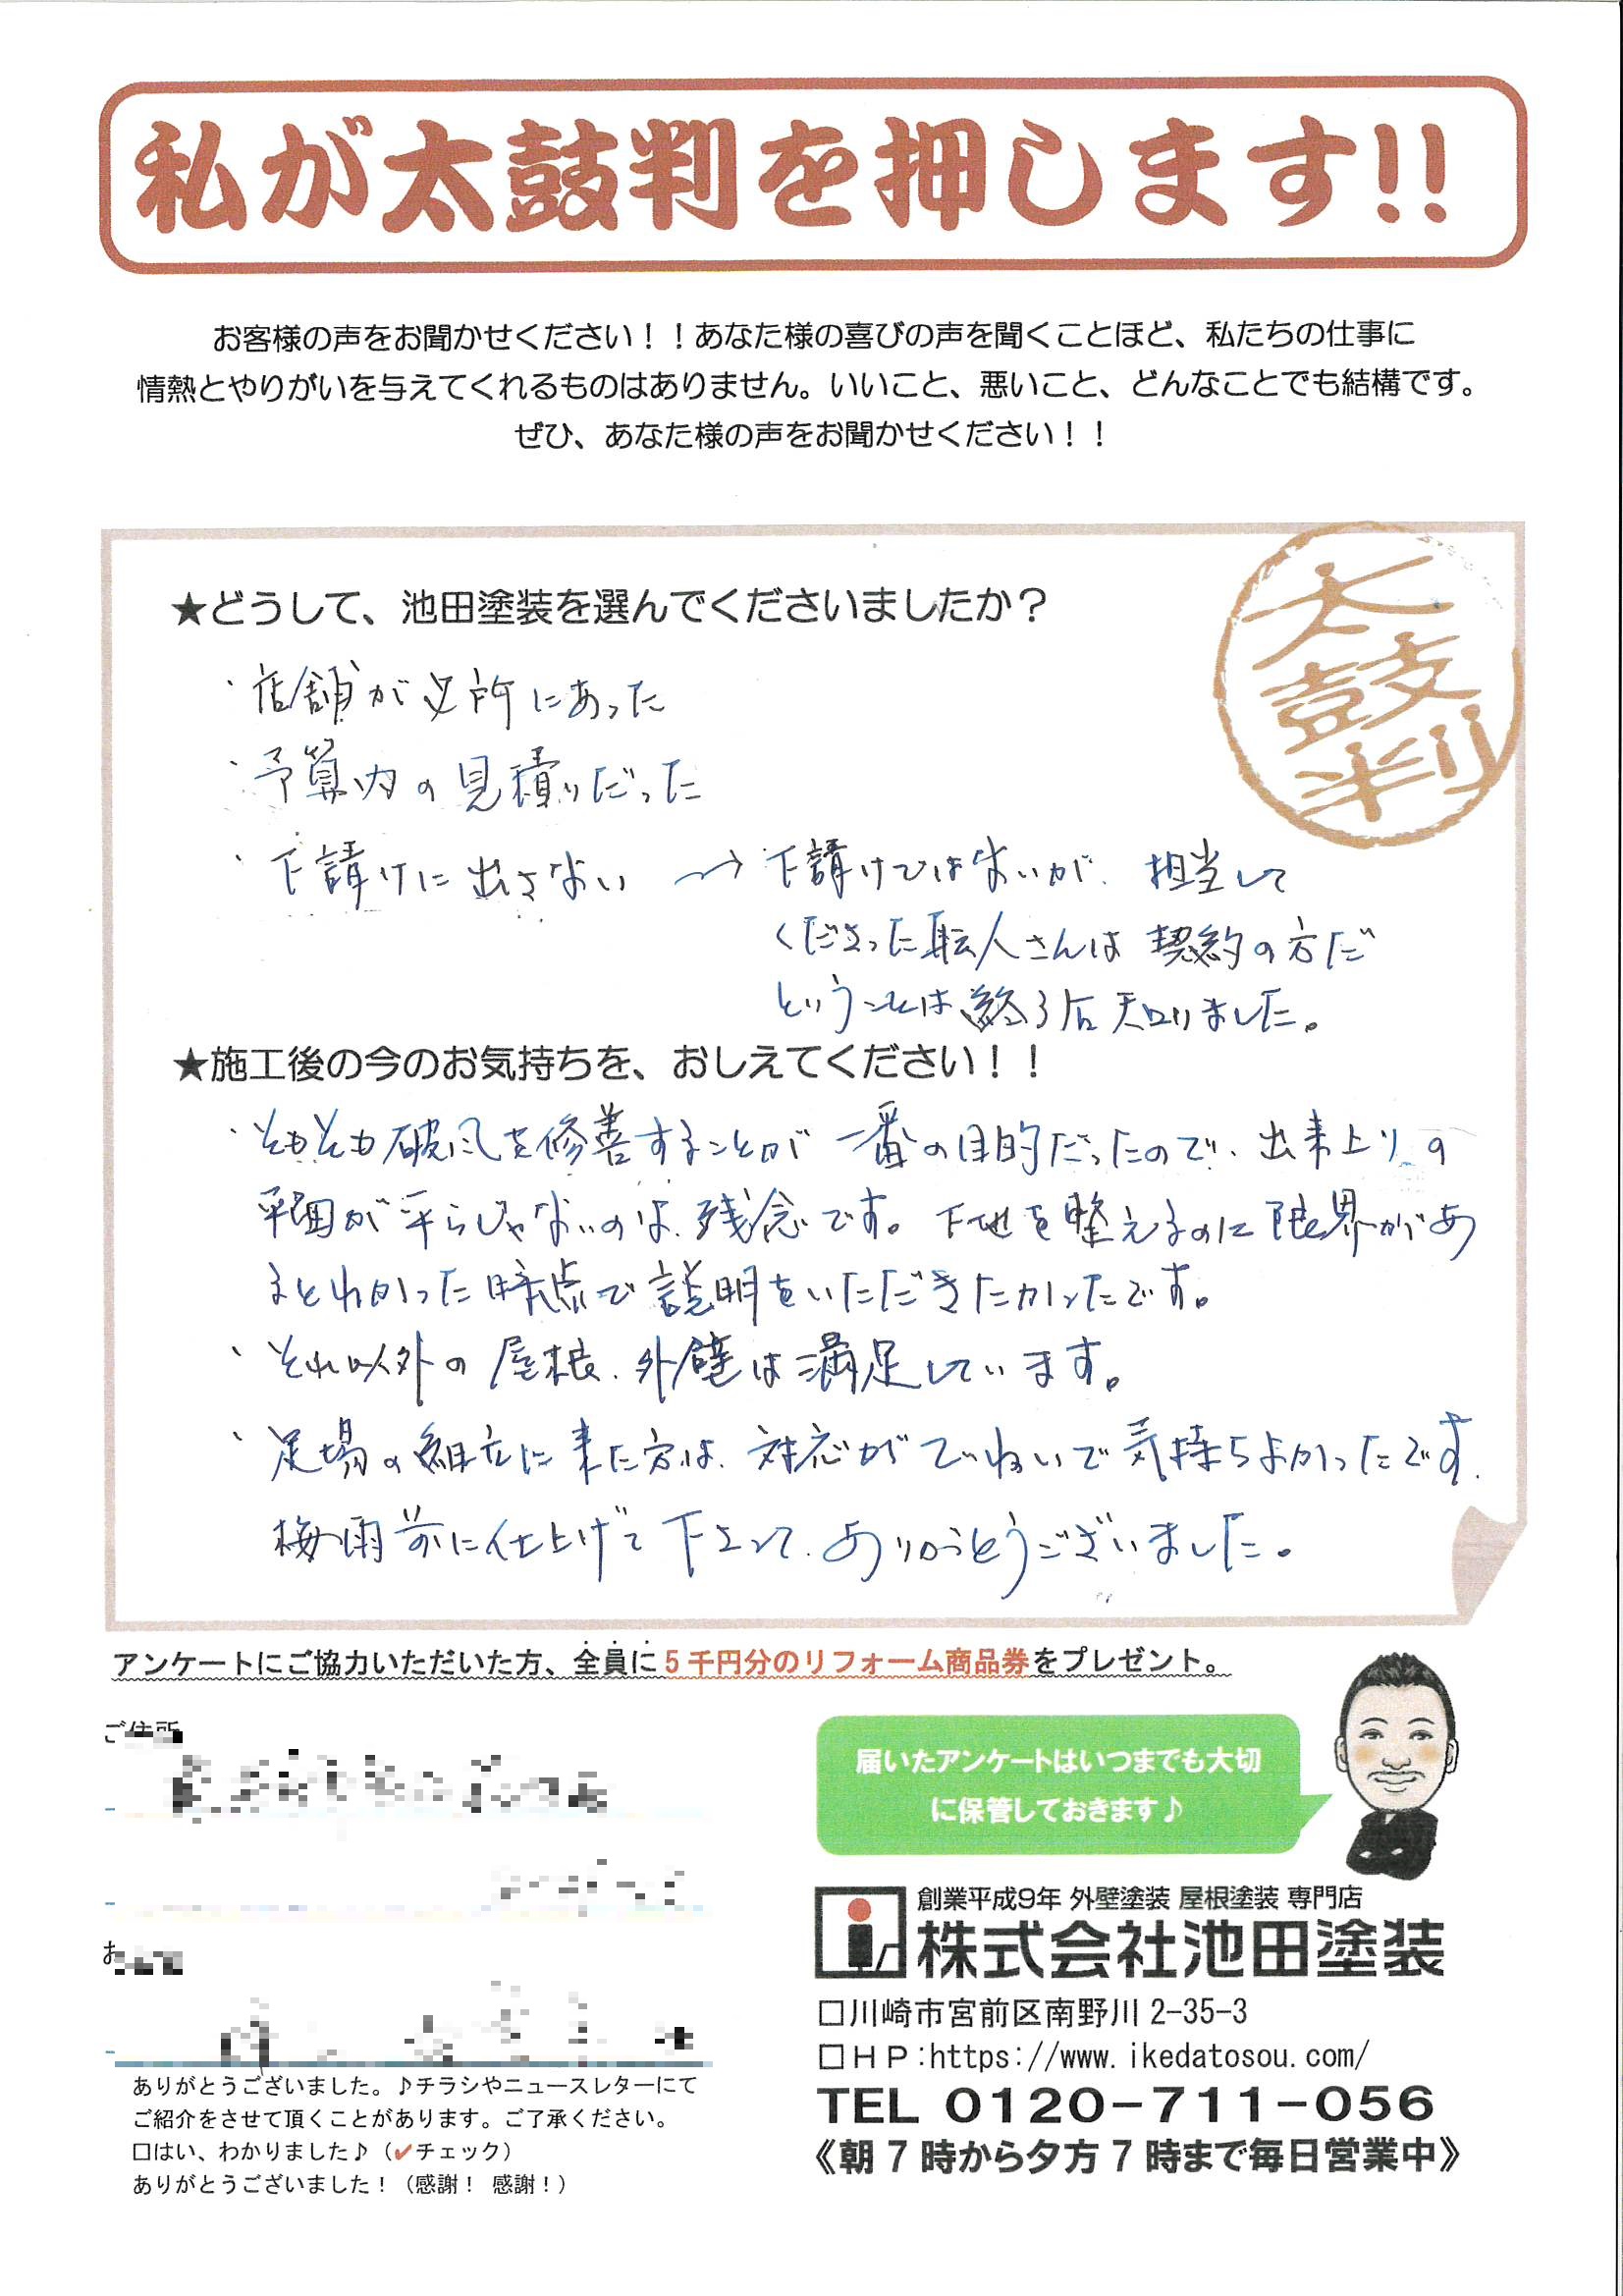 私が太鼓判を押します!!
お客様の声をお聞かせください！！あなた様の喜びの声を聞くことほど、私たちの仕事に
情熱とやりがいを与えてくれるものはありません。いいこと、悪いこと、どんなことでも結構です。
ぜひ、あなた様の声をお聞かせください！！
太鼓判
★どうして、池田塗装を選んでくださいましたか？
・店舗が近所にあった
・予算内の見積りだった
・下請けに出さない → 下請けではないが、担当して
くださった職人さんは契約の方だ
ということは終る后知りました。
★施工後の今のお気持ちを、おしえてください！！
・そもそも破風を修善することが一番の目的だったので、出来上りの
平面が平らじゃないのは、残念です。下地を整えるのに限界があ
るとわかった時点で説明をいただきたかったです。
・それ以外の屋根、外壁は満足しています。
・足場の組立に来た方は、対応がていねいで気持ちよかったです。
梅雨前に仕上げて下さって、ありがとうございました。
アンケートにご協力いただいた方、全員に５千円分のリフォーム商品券をプレゼント。
ご住所
届いたアンケートはいつまでも大切
に保管しておきます♪
お
創業平成9年 外壁塗装 屋根塗装 専門店
株式会社池田塗装
□川崎市宮前区南野川 2-35-3
□ＨＰ:https://www.ikedatosou.com/
TEL 0120-711-056
《朝７時から夕方７時まで毎日営業中》
ありがとうございました。♪チラシやニュースレターにて
ご紹介をさせて頂くことがあります。ご了承ください。
□はい、わかりました♪（✓チェック）
ありがとうございました！（感謝！ 感謝！）